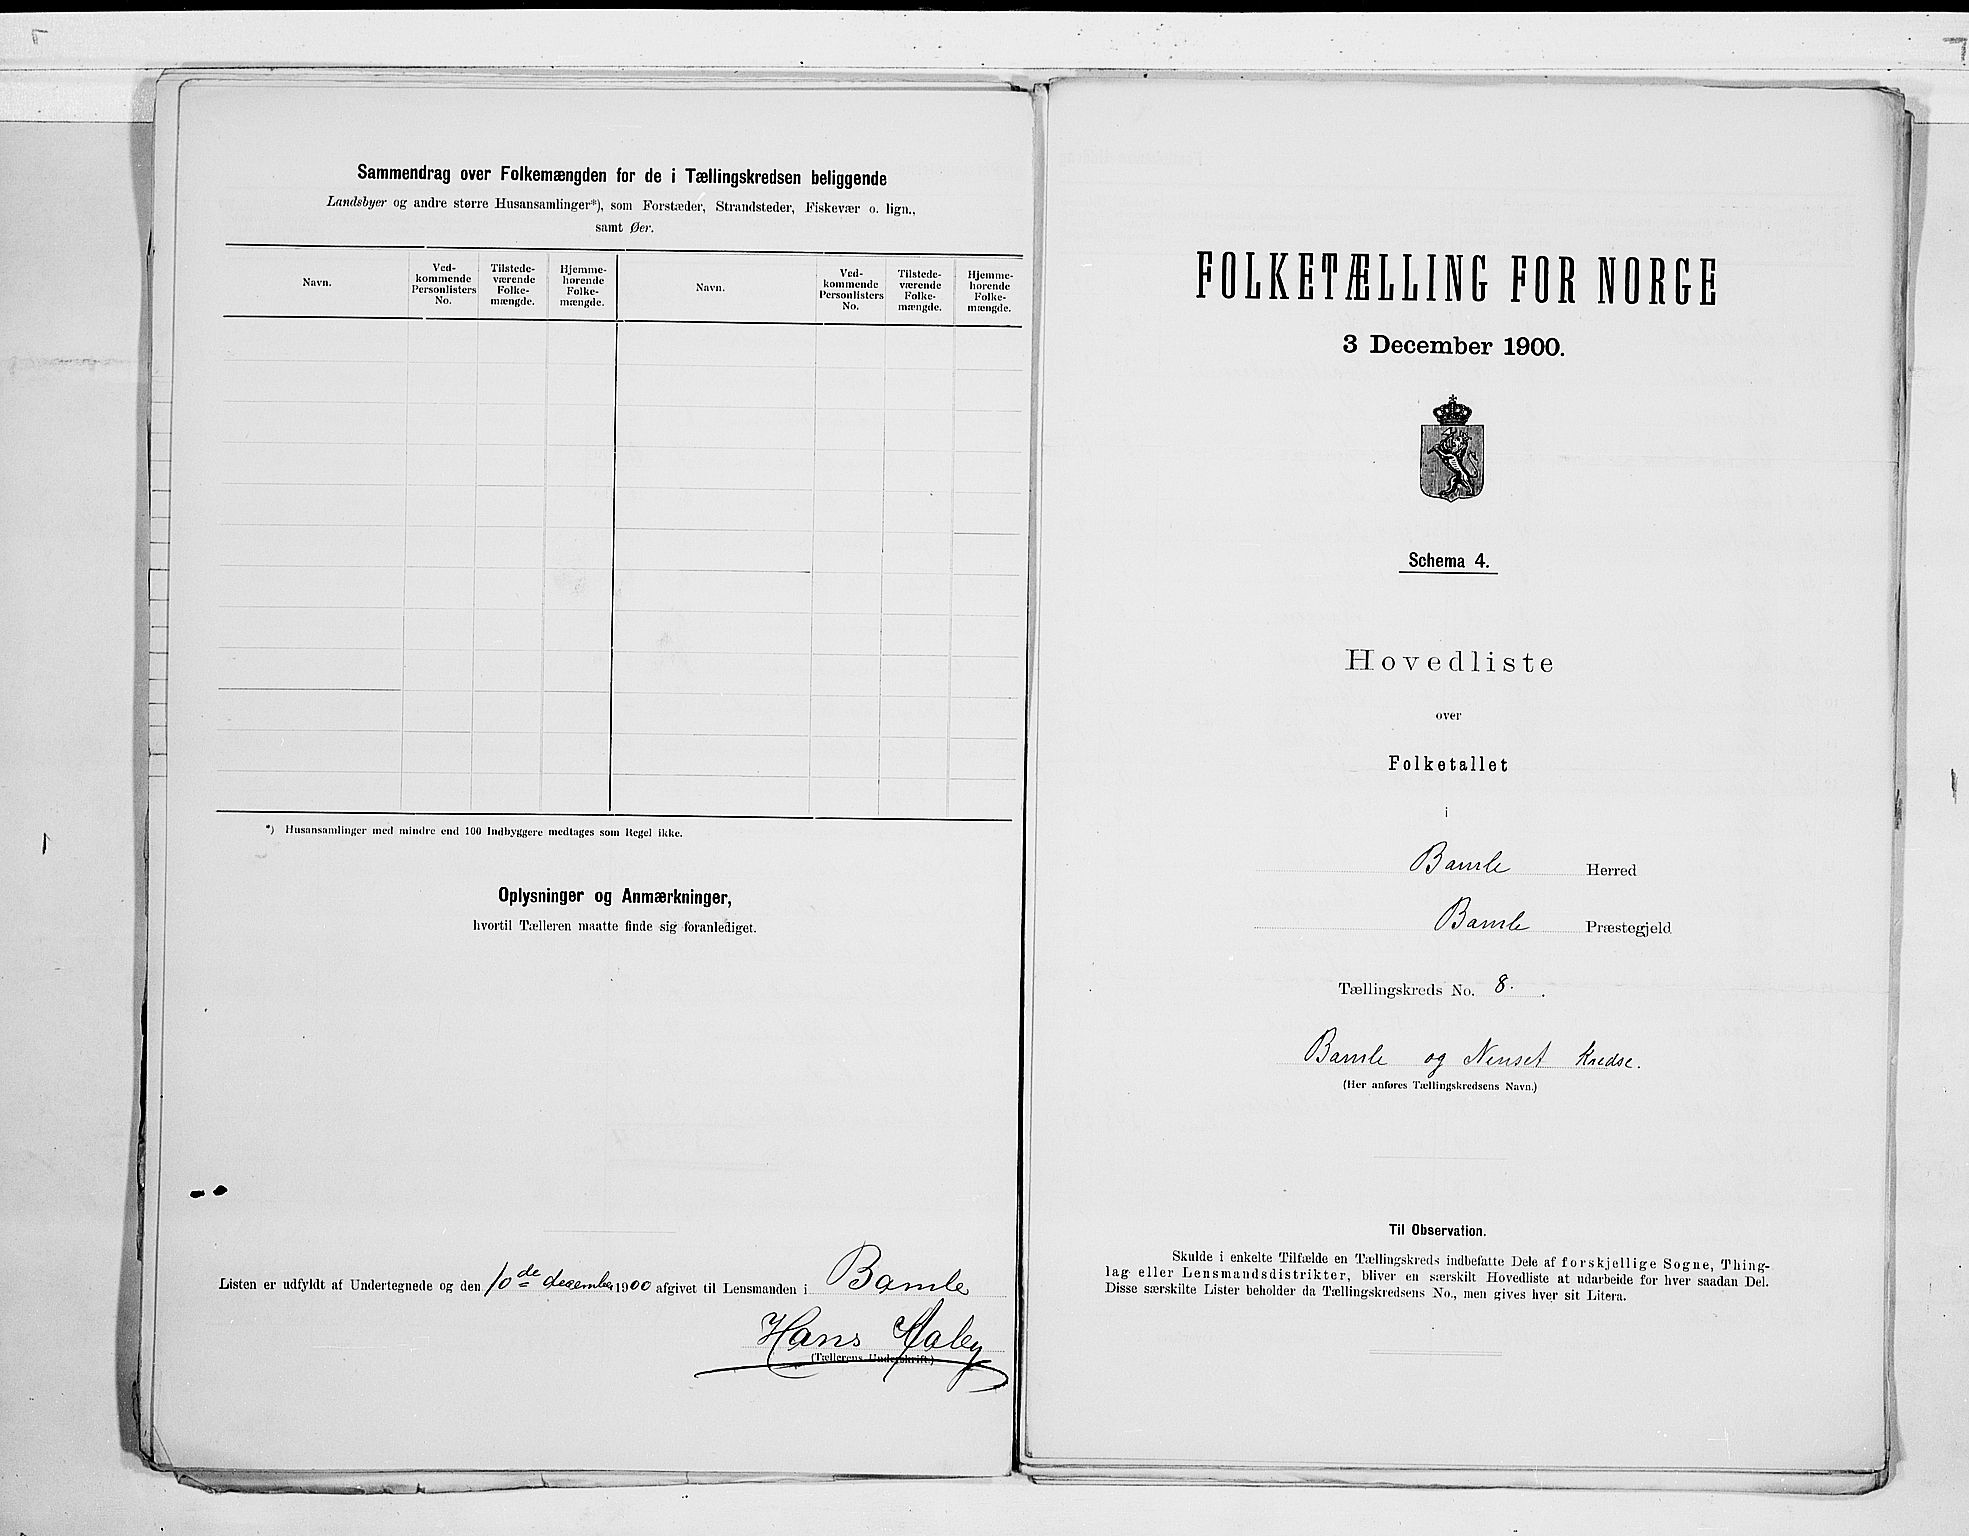 Sammendrag over Folkemængden for de i Tællingskredsen beliggende
Landsbyer og andre større Husansamlinger*), som Forstæder, Strandsteder, Fiskevær o. lign.,
samt Øer.
Navn.
Ved-
kommende
Personlisters
No.
Tilstede-
værende
Folke-
mængde.
Hjemme-
hørende
Folke-
mængde.
Navn.
Ved-
kommende
Personlisters
No.
Tilstede-
værende
Folke-
mængde.
Hjemme-
hørende
Folke-
mængde.
*) Husansamlinger med mindre end 100 Indbyggere medtages som Regel ikke.
Oplysninger og Anmærkninger,
hvortil Tælleren maatte finde sig foranlediget.
Listen er udfyldt af Undertegnede og den 10de desember 1900 afgivet til Lensmanden i Bamle
Hans
(Tællerens Underskrift.)
FOLKETÆLLING FOR NORGE
3 December 1900.
Schema 4.
Hovedliste
over
Folketallet
i
Bamle Herred
Bamle Præstegjeld
Tællingskreds No. 8.
Bamle og Nenset Kredse.
(Her anføres Tællingskredsens Navn.)
Til Observation.
Skulde i enkelte Tilfælde en Tællingskreds indbefatte Dele af forskjellige Sogne, Thing-
lag eller Lensmandsdistrikter, bliver en særskilt Hovedliste at udarbeide for hver saadan Del.
Disse særskilte Lister beholder da Tællingskredsens No., men gives hver sit Litera.